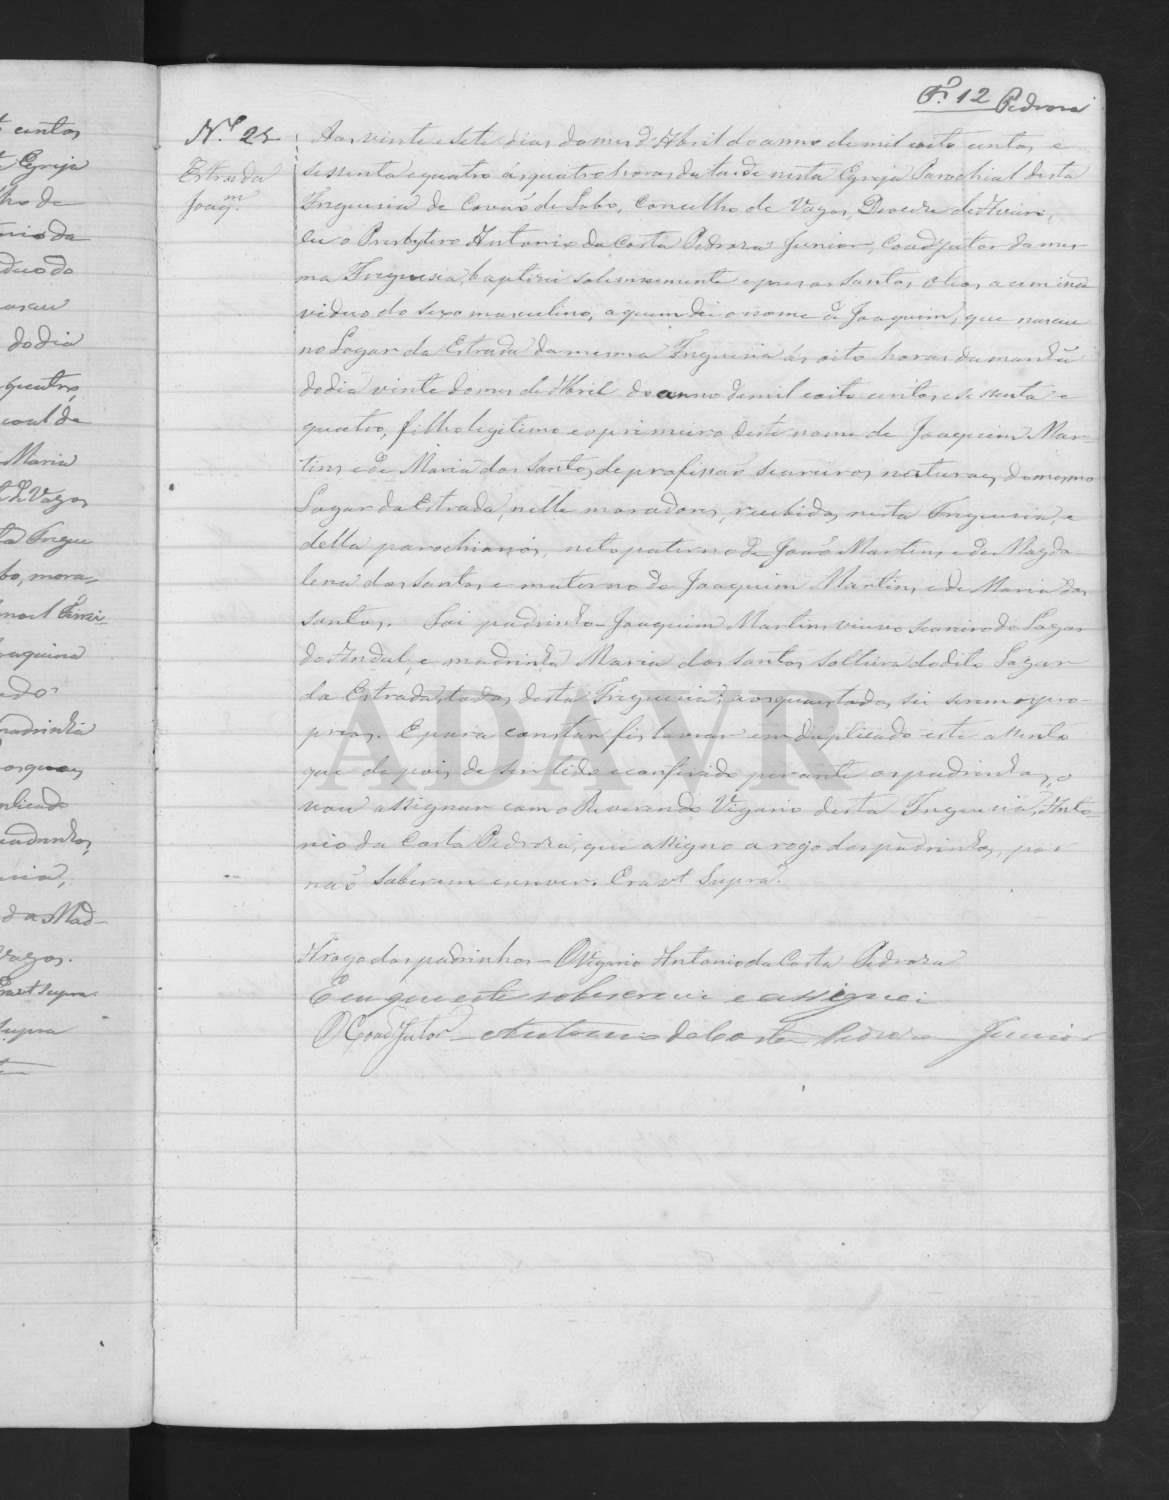 Fl. 12 Pedroza
N.º 25
Estrada
Joaqm.
Aos vinte e sete dias do mes d'Abril do anno de mil oito centos e
sessenta e quatro ás quatro horas da tarde nesta Egreja Parochial desta
Freguesia de Covaõ de Lobo, Concelho de Vagos, Diocese de Aveiro,
eu o Presbytero Antonio da Costa Pedroza Junior, Coadjutor da mes
ma Freguesia, baptizei solemnemente e puz os santos oleos a um indi
viduo do sexo masculino, a quem dei o nome de Joaquim, que nasceu
no Logar da Estrada da mesma Freguesia ás oito horas da manhã
do dia vinte do mes de Abril do anno de mil oito centos e sessenta e
quatro, filho legitimo e o primeiro deste nome de Joaquim Mar
tins e de Maria dos Santos, de profissaõ seareiros, naturaes do mesmo
Lugar da Estrada, nelle moradores, recebidos nesta Freguesia, e
della parochianos, neto paterno de Joaõ Martins e de Magda
lena dos Santos e materno de Joaquim Martins e de Maria dos
Santos. Foi padrinho Joaquim Martins viuvo seareiro do Lugar
do Andal, e madrinha Maria dos Santos solteira do dito Lugar
da Estrada, todos desta Freguesia; aos quaes todos sei serem os pro-
prios. E para constar fiz lavrar em duplicado este assento
que depois de ser lido e conferido perante os padrinhos, o
vou assignar com o Reverendo Vigario desta Freguesia, Anto-
nio da Costa Pedroza, que assigno a rogo dos padrinhos, por
naõ saberem escrever. Era vt supra.
A rogo dos padrinhos - O Vigario Antonio da Costa Pedroza
E eu que este sobscrevi e assignei
O Coadjutor - Antonio da Costa Pedroza Junior
ADAVR